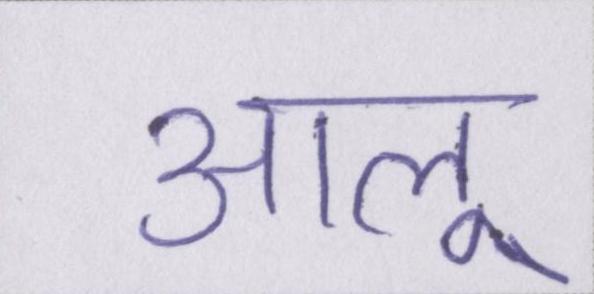 आलू